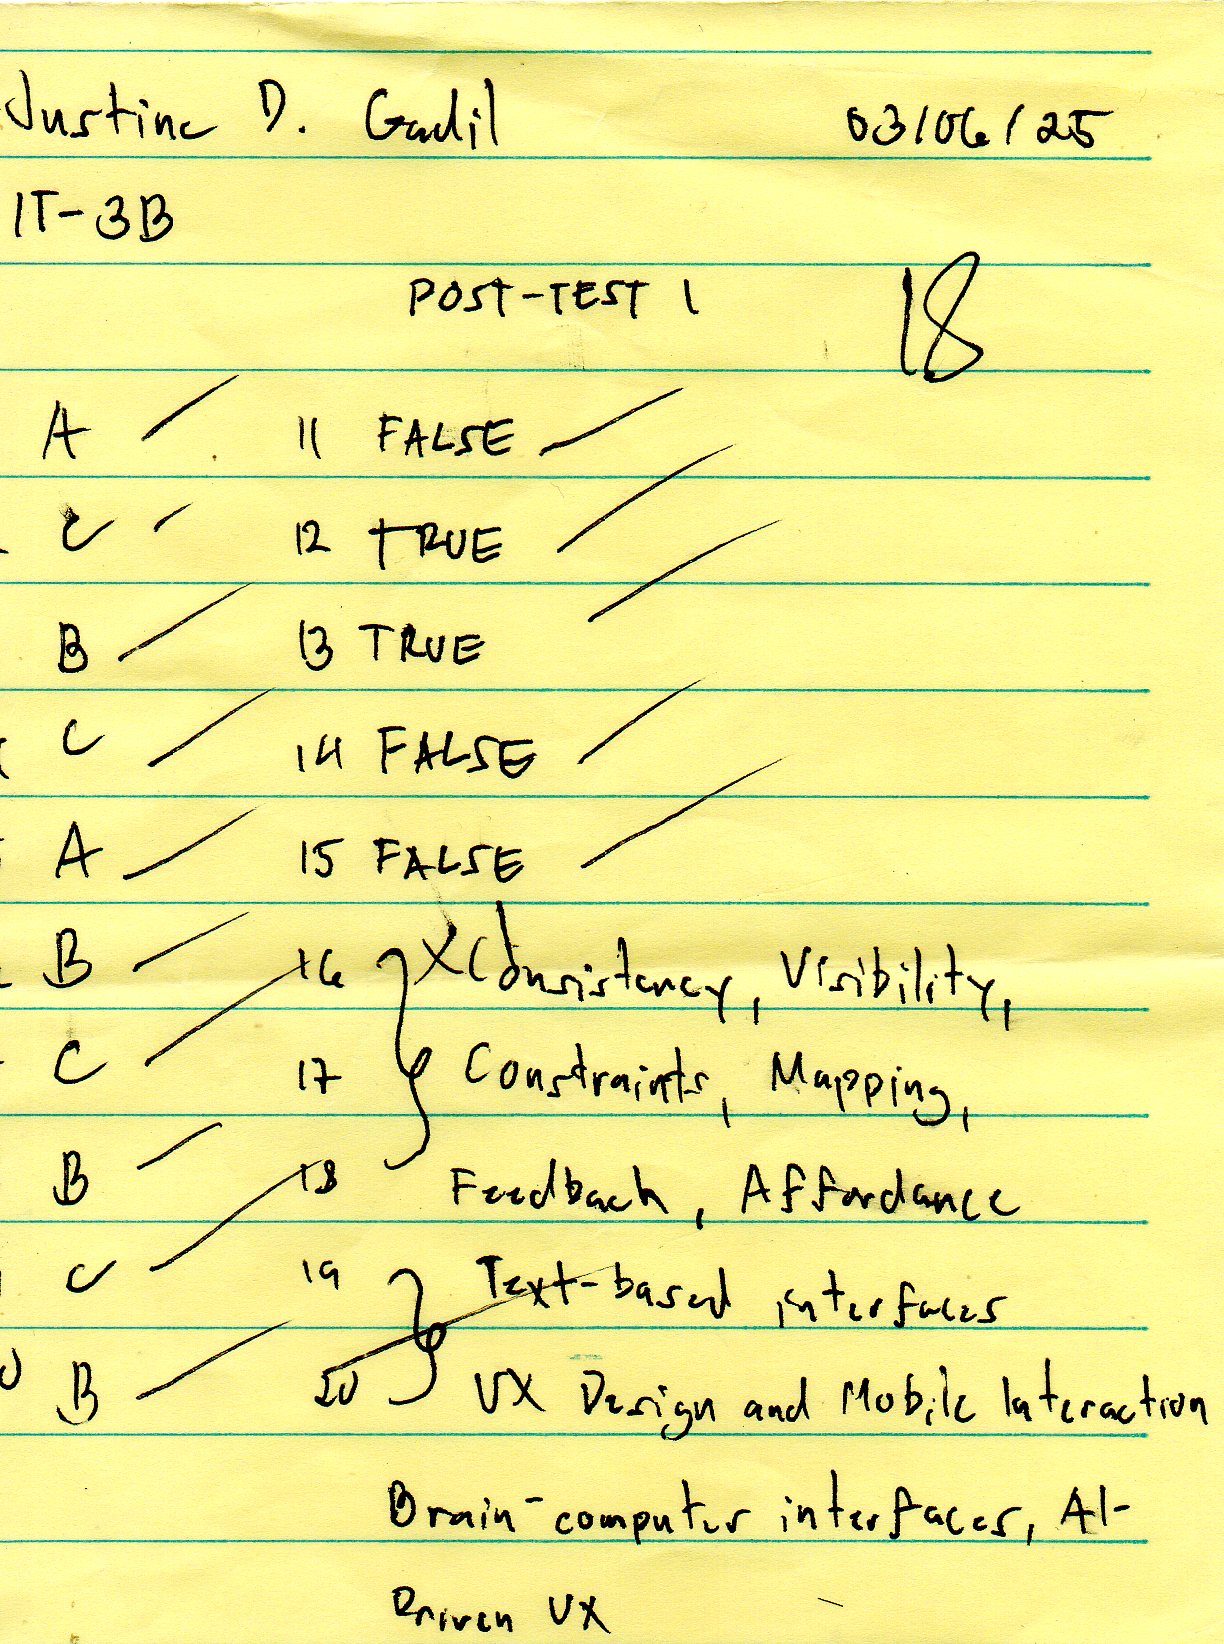 Justine D. Gadil 03/06/25
IT-3B
POST-TEST 1 18
A 11 FALSE
C 12 TRUE
B 13 TRUE
C 14 FALSE
A 15 FALSE
B 16 Consistency, Visibility,
C 17 Constraints, Mapping,
B 18 Feedback, Affordance
C 19 Text-based interfaces
B 20 UX Design and Mobile Interaction
Brain-computer interfaces, AI-
Driven UX